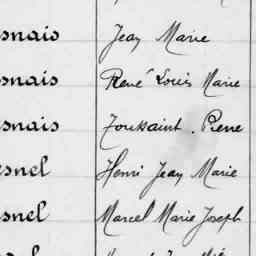 snais Jean Marie
snais René Louis Marie
snais Toussaint. Pierre
esnel Henri Jean Marie
snel Marcel Marie Joseph